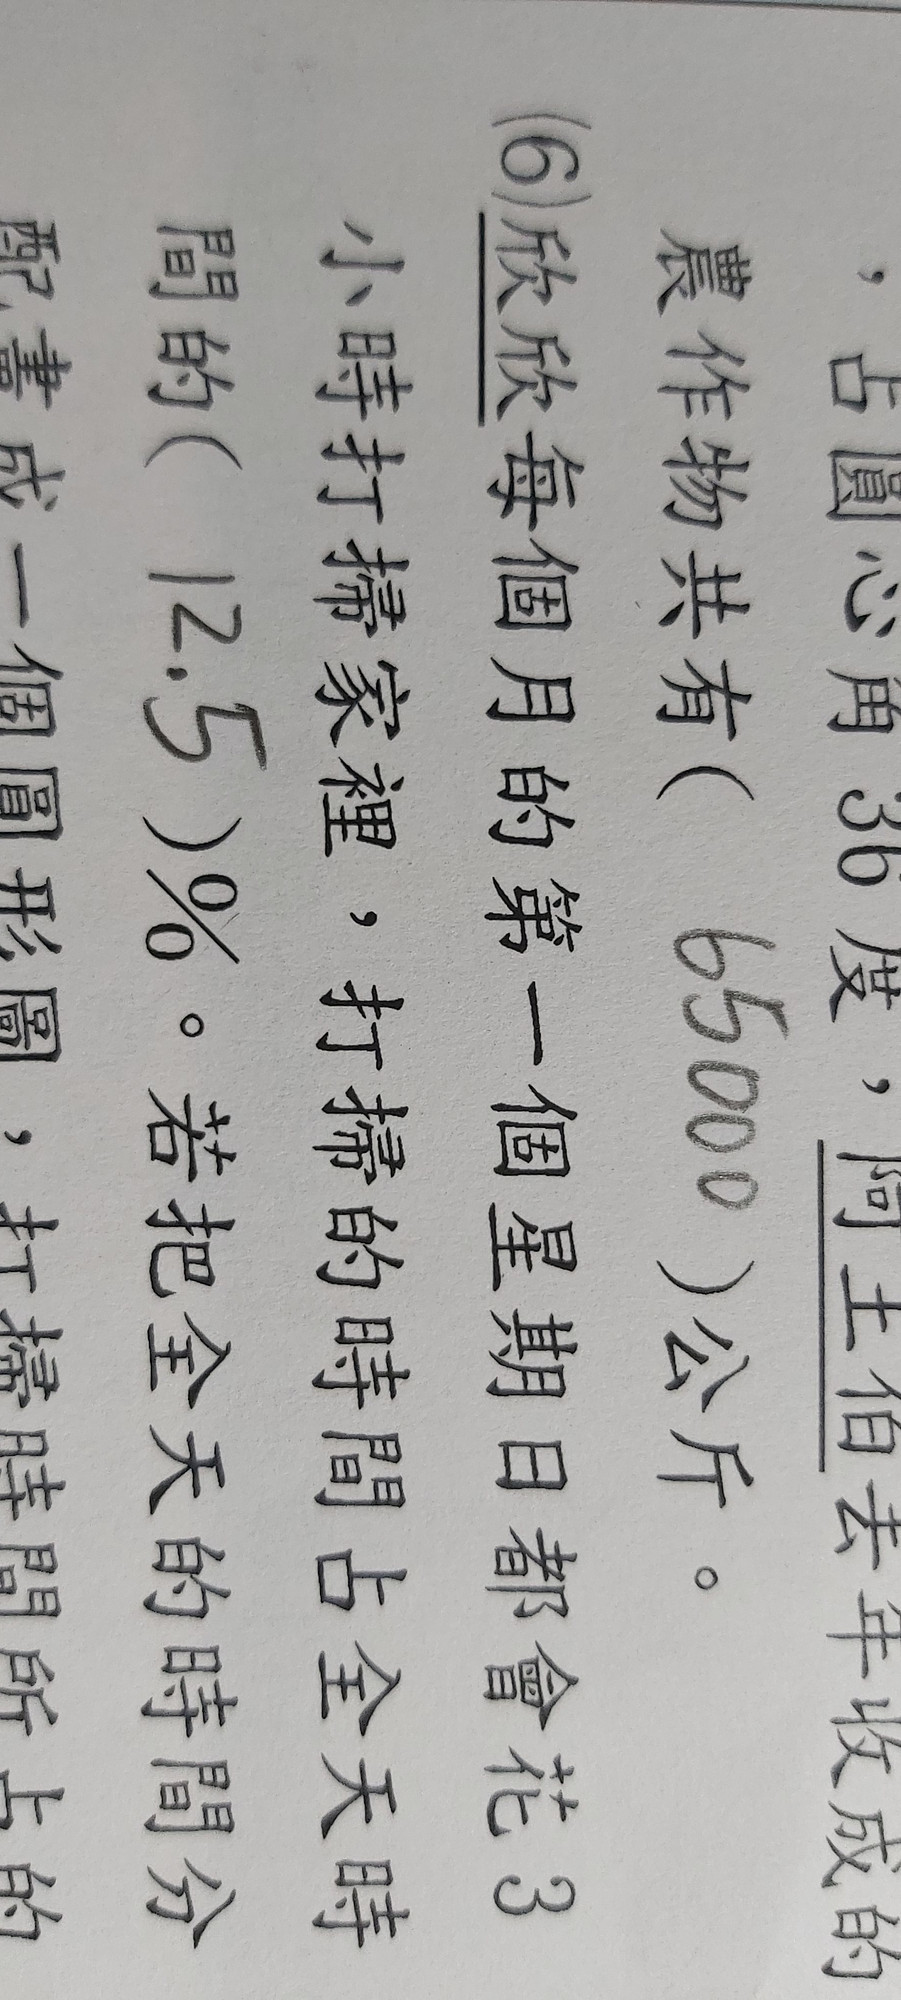 ，占圓心角36度，阿土伯去年收成的
農作物共有( 65000 )公斤。
(6)欣欣每個月的第一個星期日都會花3
小時打掃家裡，打掃的時間占全天時
間的( 12.5 )%。若把全天的時間分
配畫成一個圓形圖，打掃時間所占的